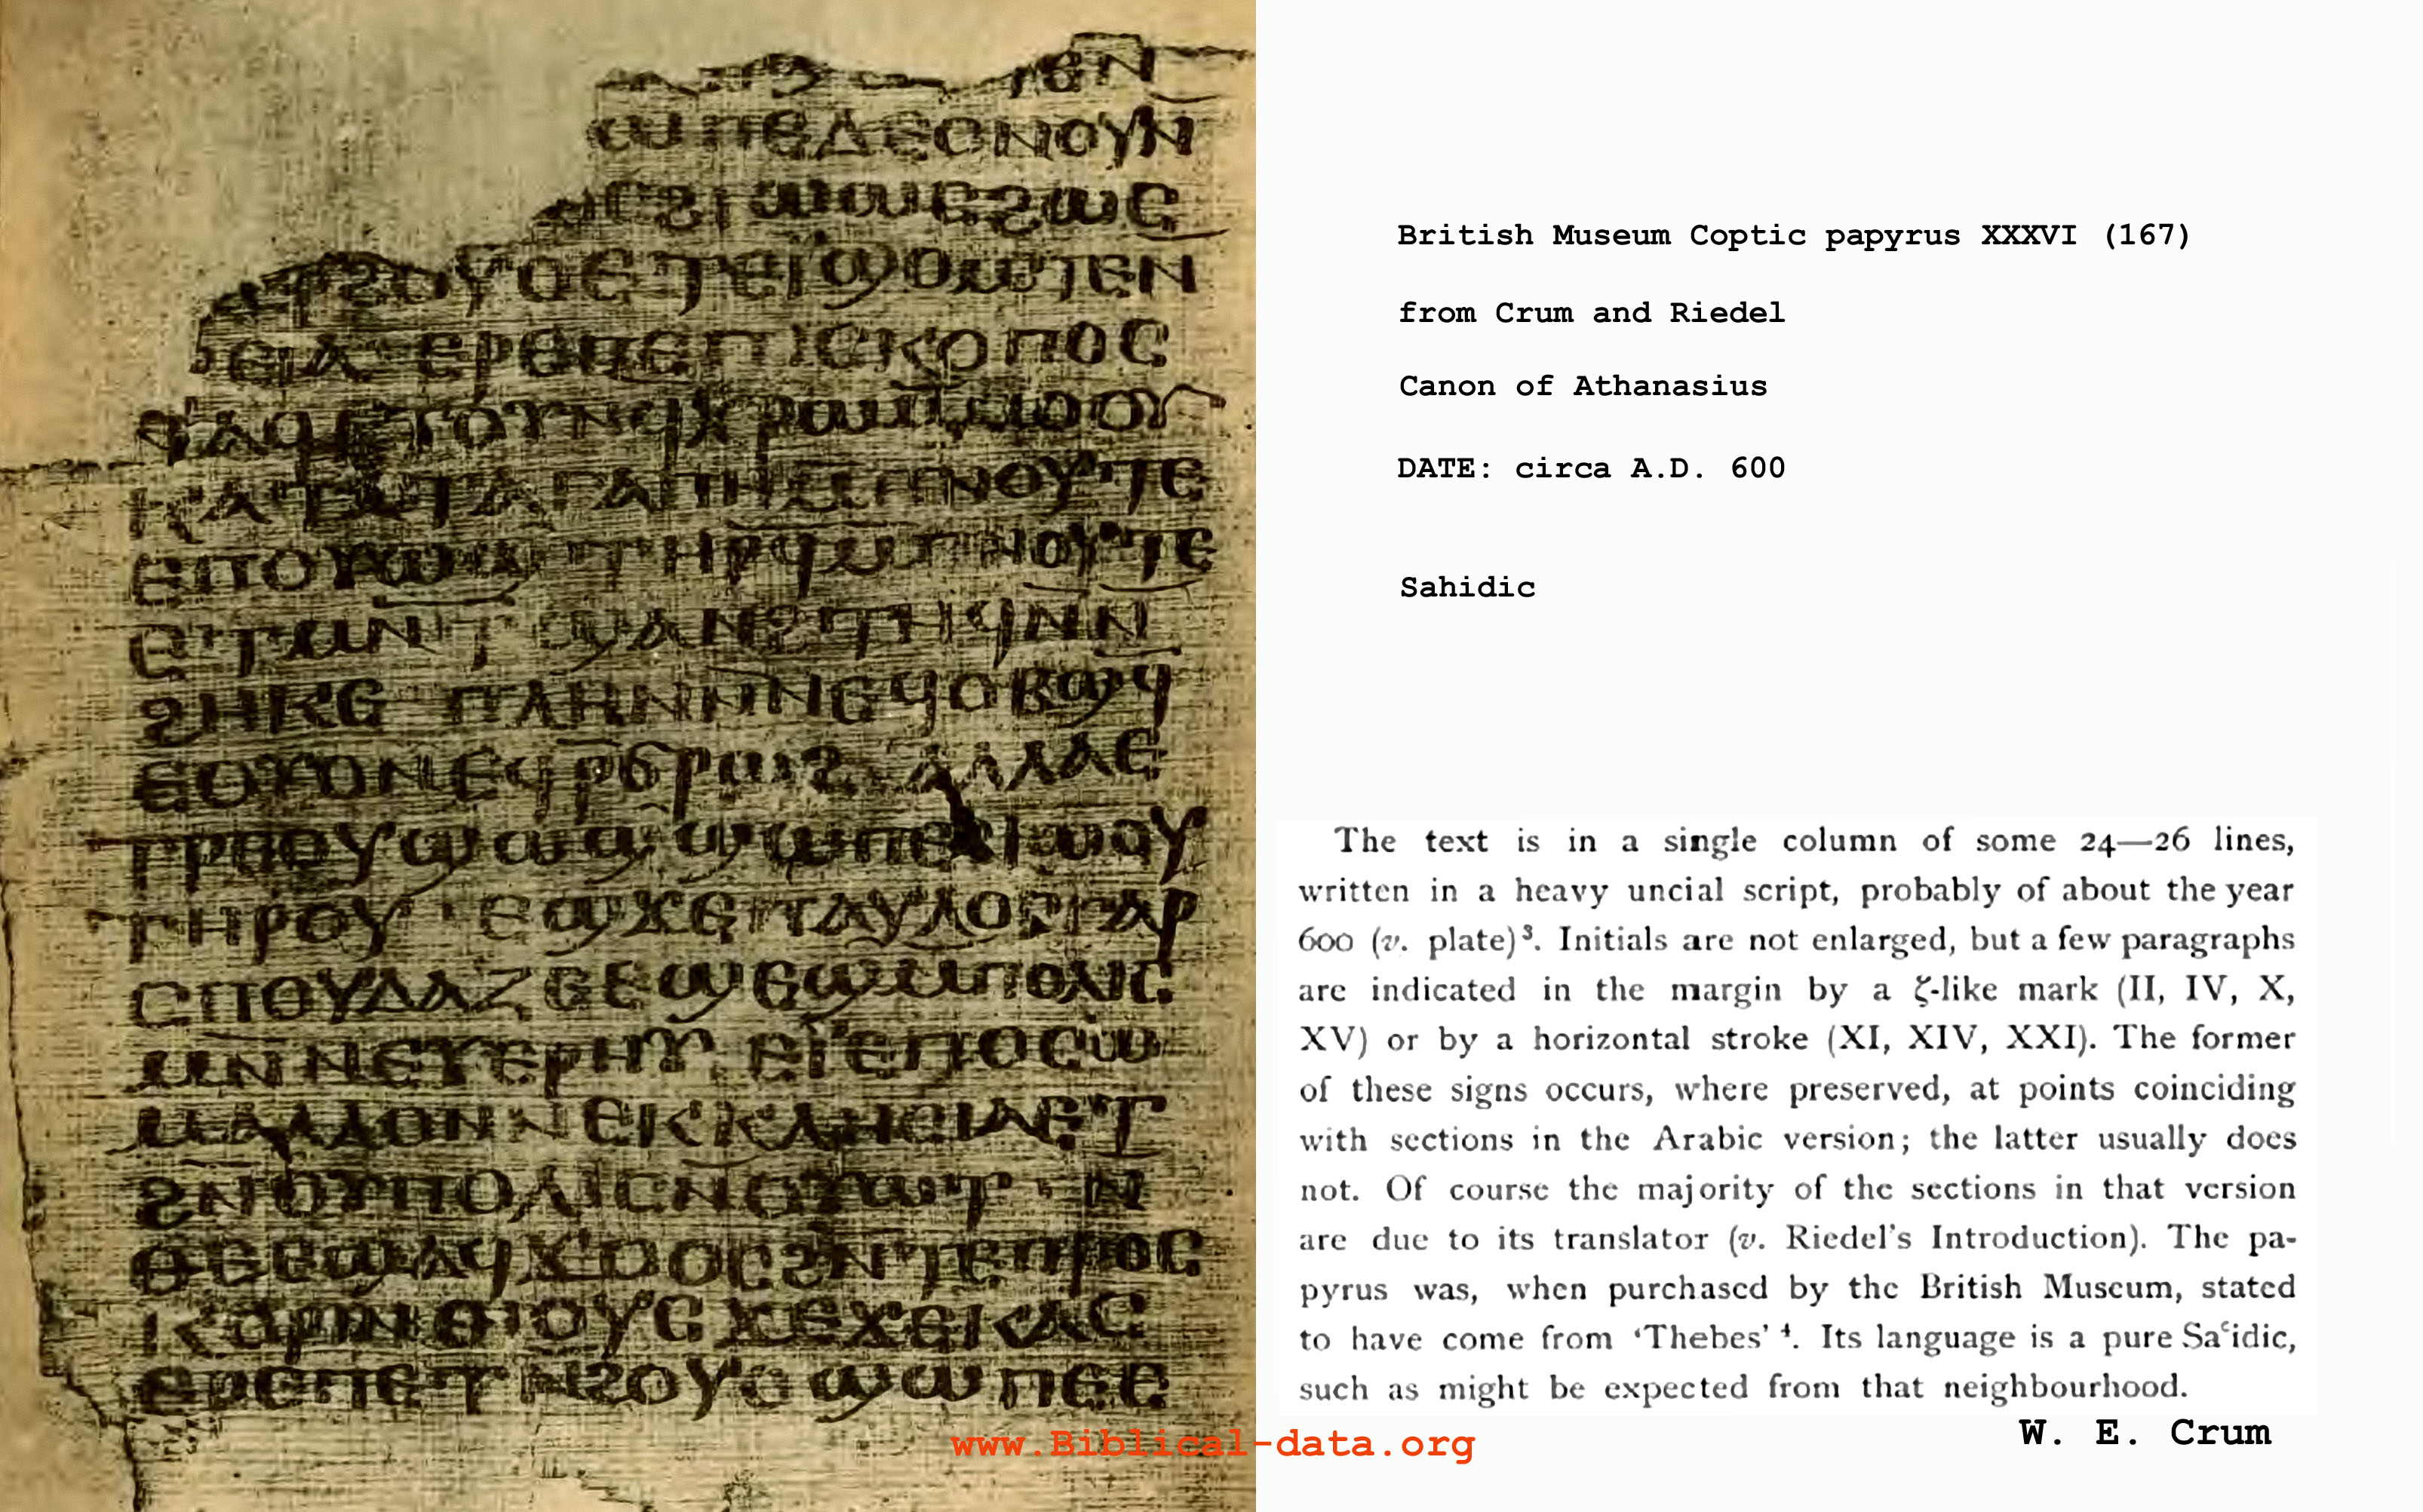 ⲧⲉⲛ
ⲱⲡⲉⲇⲉⲟⲛⲟⲩⲛ
ϩⲱⲥ
ϩⲟⲩⲟⲉⲧⲉⲓϣⲟⲙⲧⲉⲛ
ⲉⲓⲁ ⲉⲣⲉⲡⲉⲡⲓⲥⲕⲟⲡⲟⲥ
ⲭⲣⲱⲙⲙⲟⲟⲩ
ⲕⲁⲧⲁⲧⲁⲅⲁⲡⲏⲙⲡⲛⲟⲩⲧⲉ
ⲉⲡⲟⲩⲱϣ ⲧⲏⲣϥⲙⲡⲛⲟⲩⲧⲉ
ⲉⲧⲙⲛⲧϣⲁⲛϩⲧⲏϥⲛⲛ
ϩⲏⲕⲉ ⲡⲗⲏⲛⲛⲛⲉϥⲟⲃϣϥ
ⲉⲟⲩⲟⲛⲉϥⲣϭⲣⲱϩ ⲁⲗⲗⲁⲉ
ⲧⲣⲉⲟⲩϣⲱϣ ϣⲱⲡⲉϩⲓⲱⲟⲩ
ⲧⲏⲣⲟⲩ · ⲉϣϫⲉⲡⲁⲩⲗⲟⲥⲅⲁⲣ
ⲥⲡⲟⲩⲇⲁⲍⲉⲉϣⲉϣⲙⲡⲟⲗⲓⲥ
ⲙⲛⲛⲉⲩⲉⲣⲏⲩ ⲉⲓⲉⲡⲟⲥⲱ
ⲙⲁⲗⲗⲟⲛⲛⲉⲕⲕⲗⲏⲥⲓⲁⲉⲧ
ϩⲛⲟⲩⲡⲟⲗⲓⲥⲛⲟⲩⲱⲧ · ⲛ
ⲑⲉⲉϣⲁϥϫⲟⲟⲥϩⲛⲧⲉⲡⲣⲟⲥ
ⲕⲟⲣⲓⲛⲑⲓⲟⲩⲥϫⲉϫⲉⲓⲕⲁⲥ
ⲉⲣⲉⲡⲉⲧⲛϩⲟⲩⲟϣⲱⲡⲉⲉ
British Museum Coptic papyrus XXXVI (167)
from Crum and Riedel
Canon of Athanasius
DATE: circa A.D. 600
Sahidic
The text is in a single column of some 24—26 lines,
written in a heavy uncial script, probably of about the year
600 (v. plate)³. Initials are not enlarged, but a few paragraphs
are indicated in the margin by a ζ-like mark (II, IV, X,
XV) or by a horizontal stroke (XI, XIV, XXI). The former
of these signs occurs, where preserved, at points coinciding
with sections in the Arabic version; the latter usually does
not. Of course the majority of the sections in that version
are due to its translator (v. Riedel's Introduction). The pa-
pyrus was, when purchased by the British Museum, stated
to have come from ‘Thebes’ ⁴. Its language is a pure Saʿidic,
such as might be expected from that neighbourhood.
W. E. Crum
www.Biblical-data.org